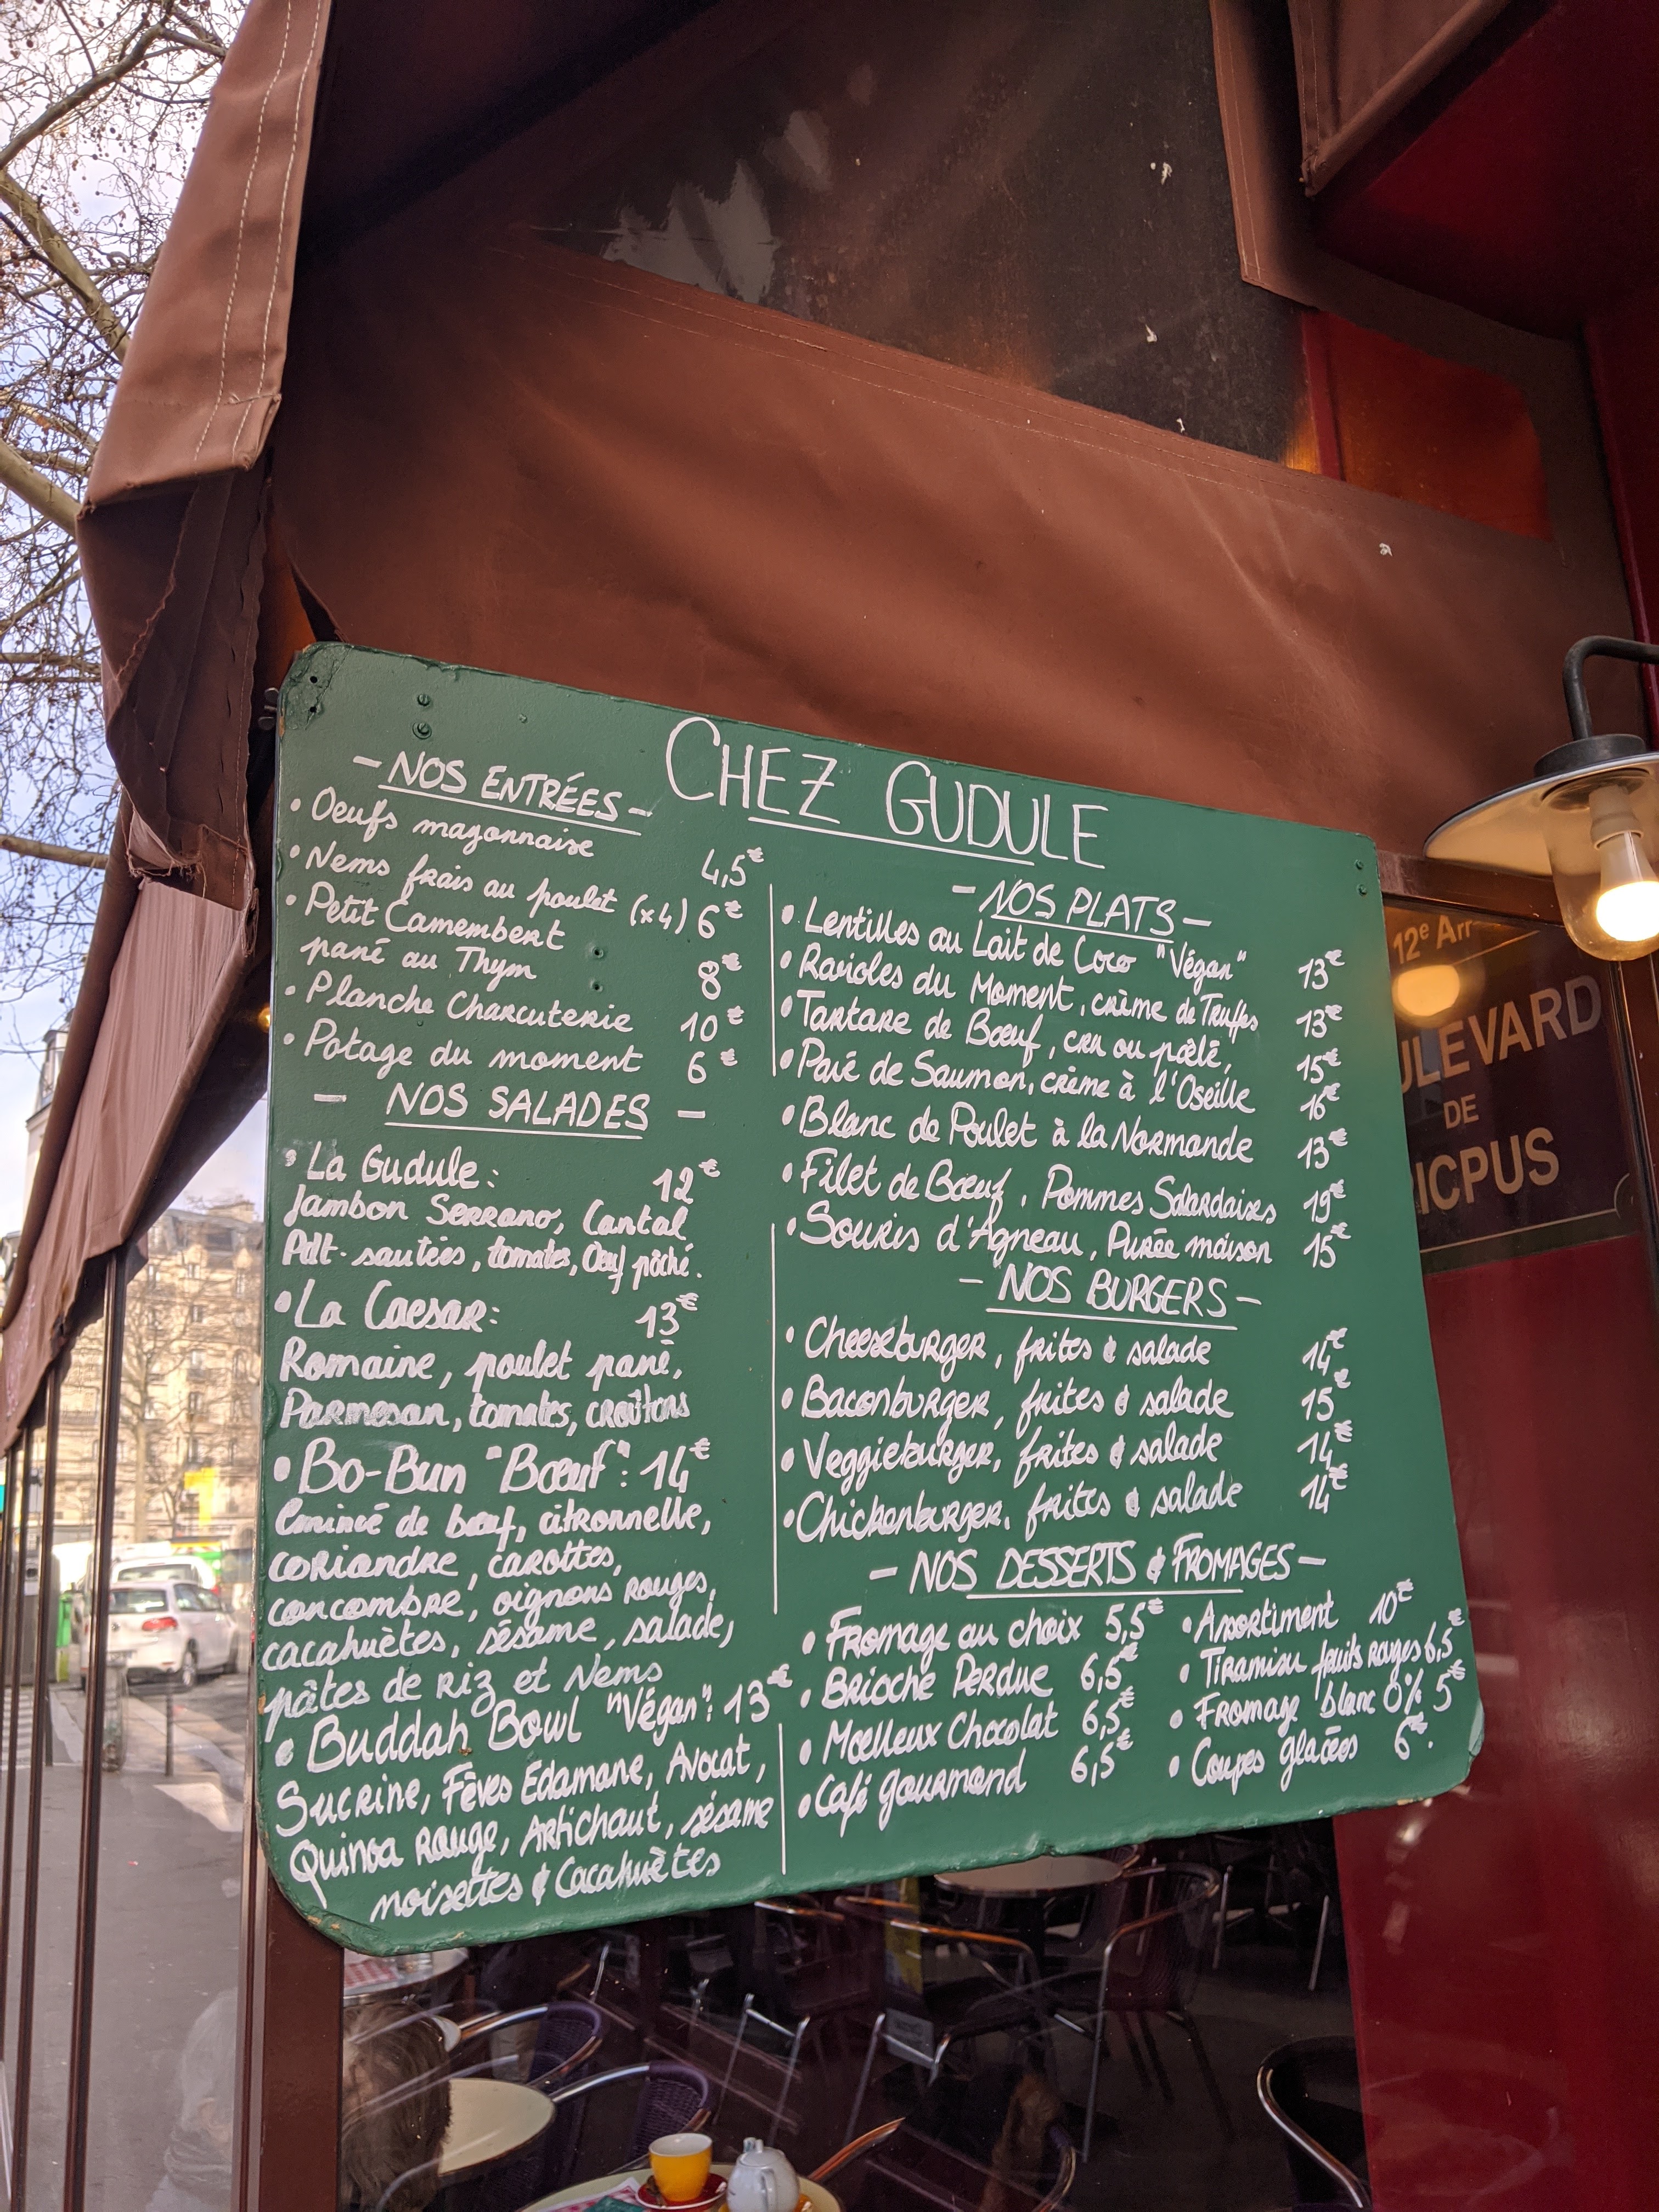 CHEZ GUDULE
- NOS ENTRÉES -
• Oeufs mayonnaise 4,5€
• Nems frais au poulet (x4) 6€
• Petit Camembert
pané au Thym 8€
• Planche Charcuterie 10€
• Potage du moment 6€
- NOS SALADES -
• La Gudule: 12€
Jambon Serrano, Cantal,
Pdt. sautées, tomates, Oeuf poché.
• La Caesar: 13€
Romaine, poulet pané,
Parmesan, tomates, croûtons
• Bo-Bun "Bœuf": 14€
Emincé de bœuf, citronnelle,
coriandre, carottes,
concombre, oignons rouges,
cacahuètes, sésame, salade,
pâtes de riz et Nems
• Buddah Bowl "Végan": 13€
Sucrine, Fèves Edamane, Avocat,
Quinoa Rouge, Artichaut, sésame
noisettes & Cacahuètes
- NOS PLATS -
• Lentilles au Lait de Coco "Végan" 13€
• Ravioles du Moment, crème de Truffes 13€
• Tartare de Bœuf, cru ou poêlé, 15€
• Pavé de Saumon, crème à l'Oseille 16€
• Blanc de Poulet à la Normande 13€
• Filet de Bœuf, Pommes Salardaises 19€
• Souris d'Agneau, Purée maison 15€
- NOS BURGERS -
• Cheeseburger, frites & salade 14€
• Baconburger, frites & salade 15€
• Veggieburger, frites & salade 14€
• Chickenburger, frites & salade 14€
- NOS DESSERTS & FROMAGES -
• Fromage au choix 5,5€
• Brioche Perdue 6,5€
• Moelleux Chocolat 6,5€
• Café gourmand 6,5€
• Assortiment 10€
• Tiramisu fruits rouges 6,5€
• Fromage blanc 0% 5€
• Coupes glacées 6€.
12e Arr
ULEVARD
DE
ICPUS